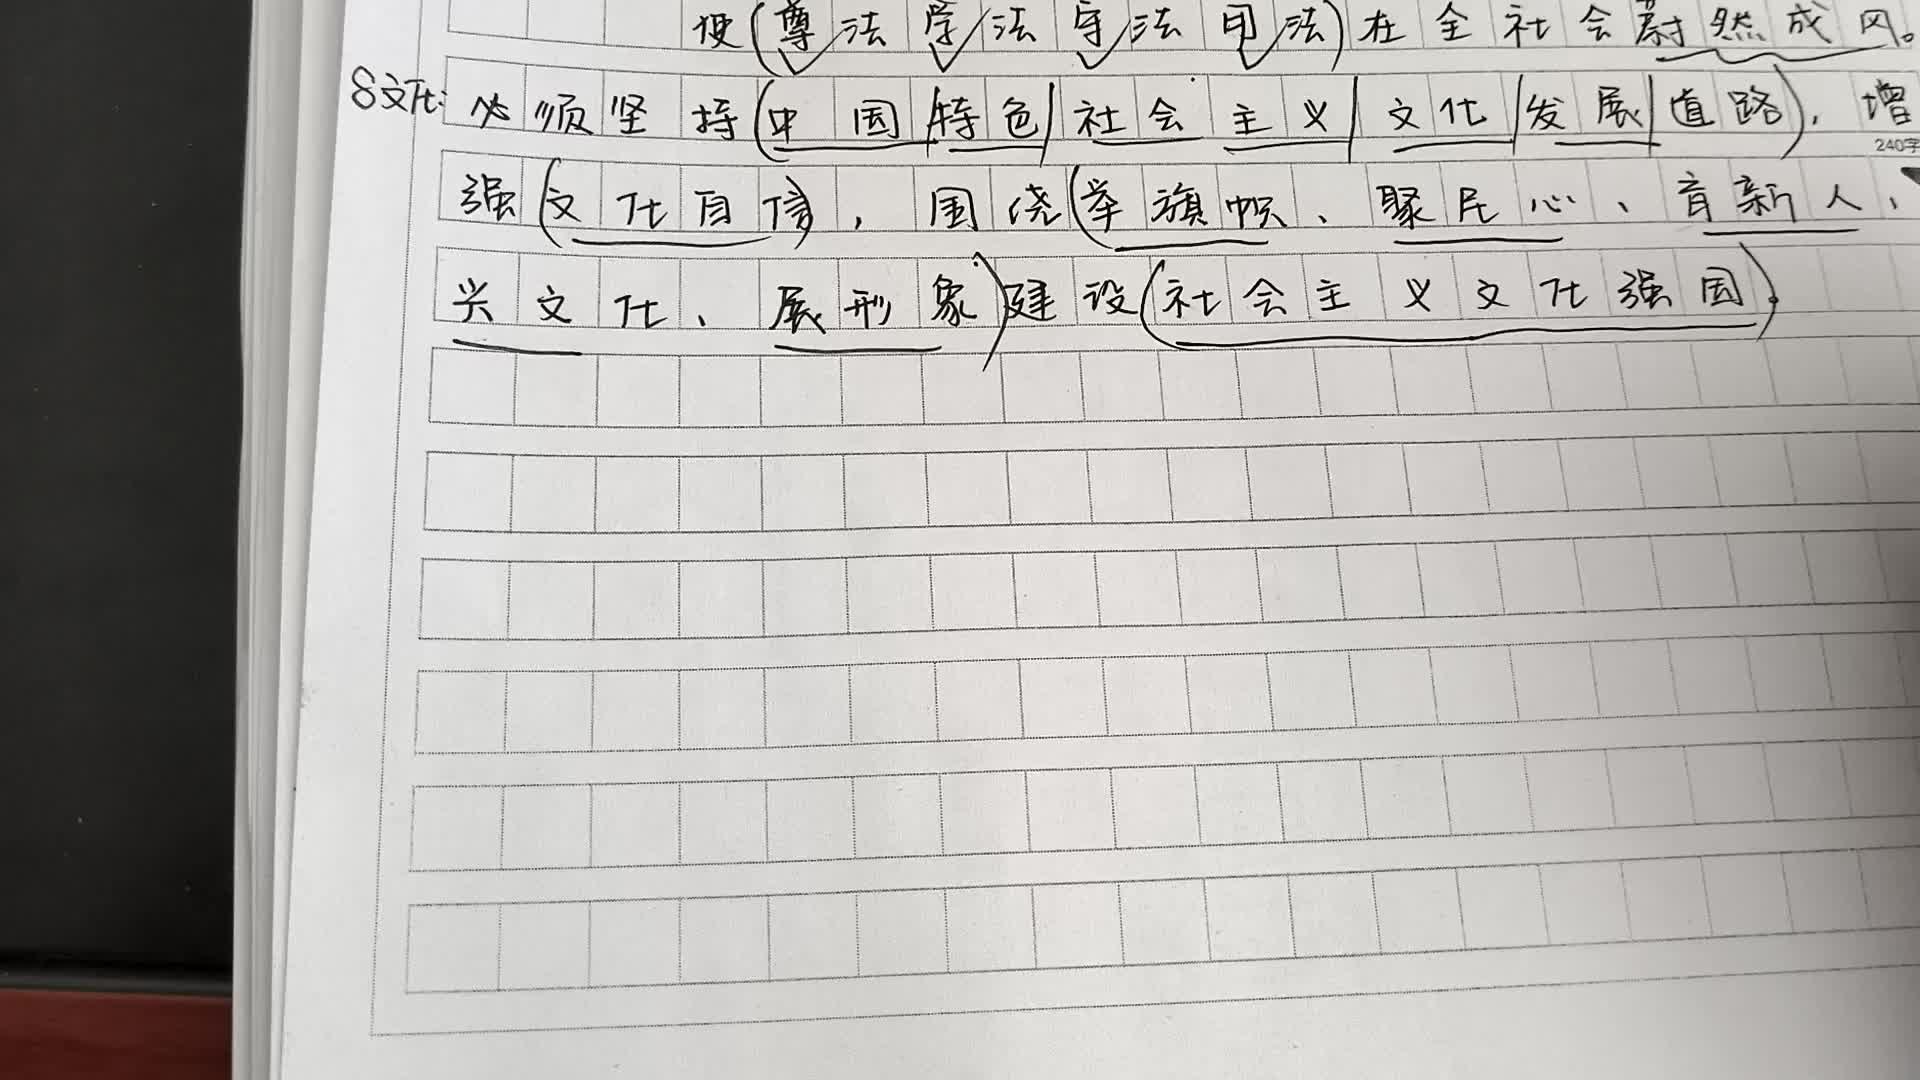 使(尊法学法守法用法)在全社会蔚然成风。
8文化:必须坚持(中国|特色|社会主义|文化|发展|道路),增
240字
强(文化自信),围绕(举旗帜、聚民心、育新人、
兴文化、展形象)建设(社会主义文化强国)